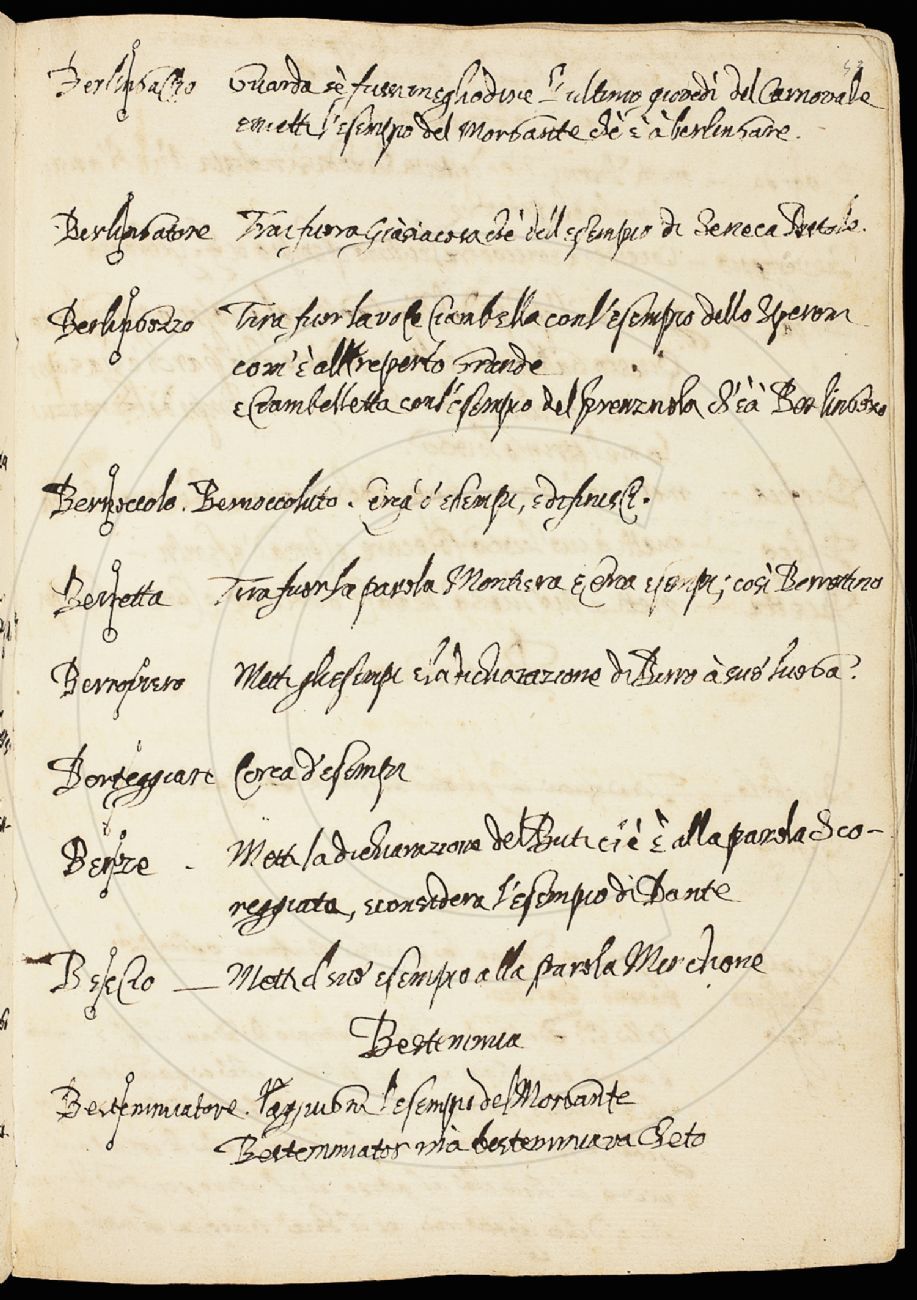 Berlingaccio Guarda sè fusse meglio dire l'ultimo giovedì del Carnovale
e metti l'esempio del Morgante ch'è à berlingare.
Berlingatore Trai fuora ch'è dell'esempio di Seneca Pistole.
Berlingozzo Tira fuor la voce Ciambella con l'esempio dello Speron
com'è all reperto grande
e Ciambelletta con l'esempio del Firenzuola ch'è à Berlingozzo
Bernoccolo. Bernoccoluto. Cerca d'esempi, e difinisci.
Berretta Tira fuor la parola Montiera e cerca esempi; così Berrettino
Berroviero Metti gli esempi e la dichiarazione di Birro à suo luogo.
Berteggiare Cerca d'esempi
Berze - Metti la dichiarazione del Buti ch'è à alla parola Sco-
reggiata, e considera l'esempio di Dante
Bescio — Metti il suo esempio alla parola Moccione
Bestemmia
Bestemmiatore. l'aggiugni l'esempio del Morgante
Bestemmiator mà bestemmiava cheto